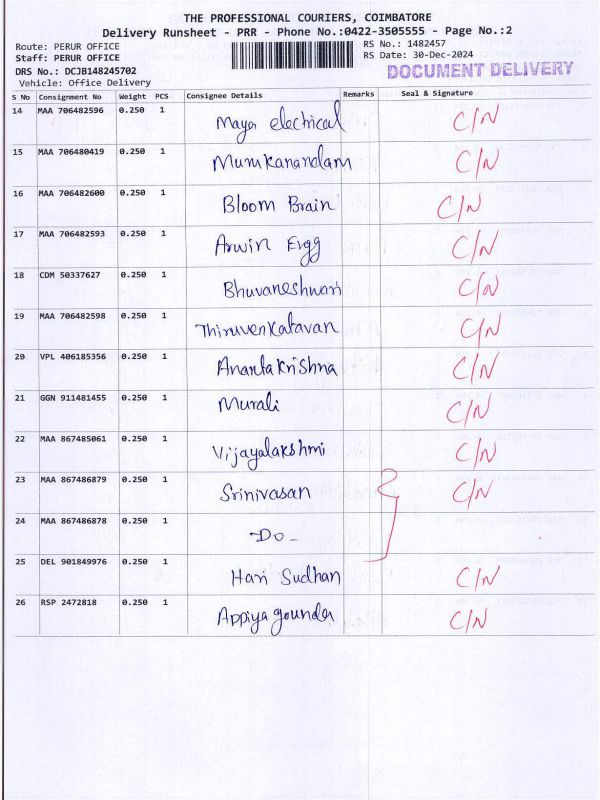 THE PROFESSIONAL COURIERS, COIMBATORE
Delivery Runsheet - PRR - Phone No.:0422-3505555 - Page No.:2
Route: PERUR OFFICE RS No.: 1482457
Staff: PERUR OFFICE RS Date: 30-Dec-2024
DRS No.: DCJB148245702 DOCUMENT DELIVERY
Vehicle: Office Delivery
S No Consignment No Weight PCS Consignee Details Remarks Seal & Signature
14 MAA 706482596 0.250 1 Maya electrical C/N
15 MAA 706480419 0.250 1 Mumkanandam C/N
16 MAA 706482600 0.250 1 Bloom Brain C/N
17 MAA 706482593 0.250 1 Arwin Evgg C/N
18 CDM 50337627 0.250 1 Bhuvaneshwari C/N
19 MAA 706482598 0.250 1 Thiruvenkatavan C/N
20 VPL 406185356 0.250 1 Ananta Krishna C/N
21 GGN 911481455 0.250 1 Murali C/N
22 MAA 867485061 0.250 1 Vijayalakshmi C/N
23 MAA 867486879 0.250 1 Srinivasan C/N
24 MAA 867486878 0.250 1 -Do-
25 DEL 901849976 0.250 1 Hari Sudhan C/N
26 RSP 2472818 0.250 1 Appiya gounder C/N